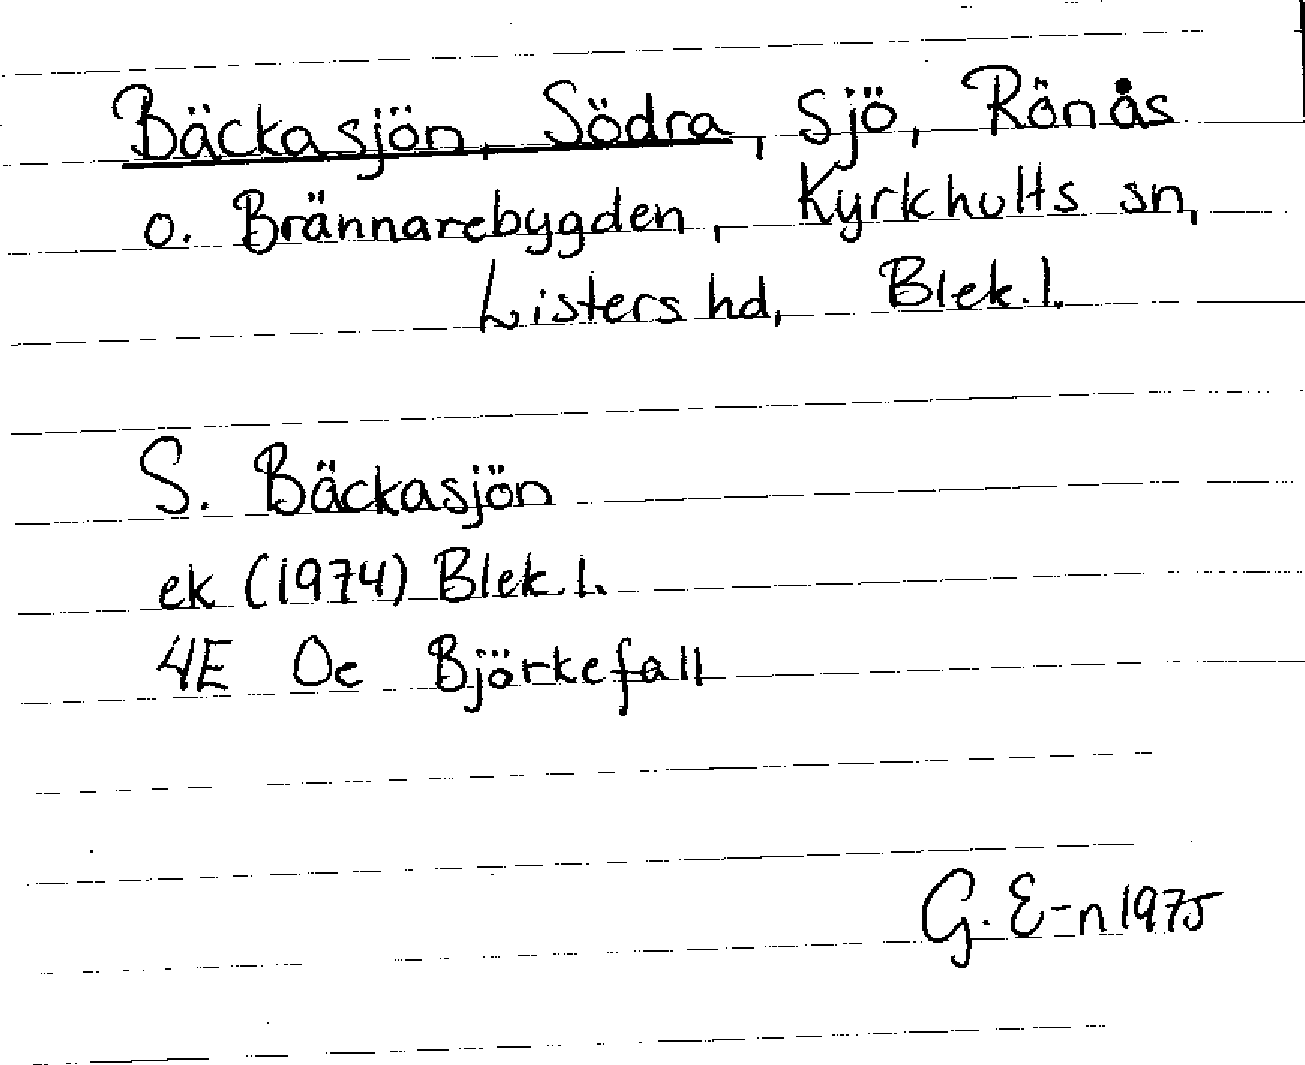 Bäckasjön, Södra, Sjö, Rönås
o. Brännarebygden, Kyrkhults sn,
Listers hd, Blek.l.
S. Bäckasjön
ek (1974) Blek.l.
4E 0c Björkefall
G. E-n 1975